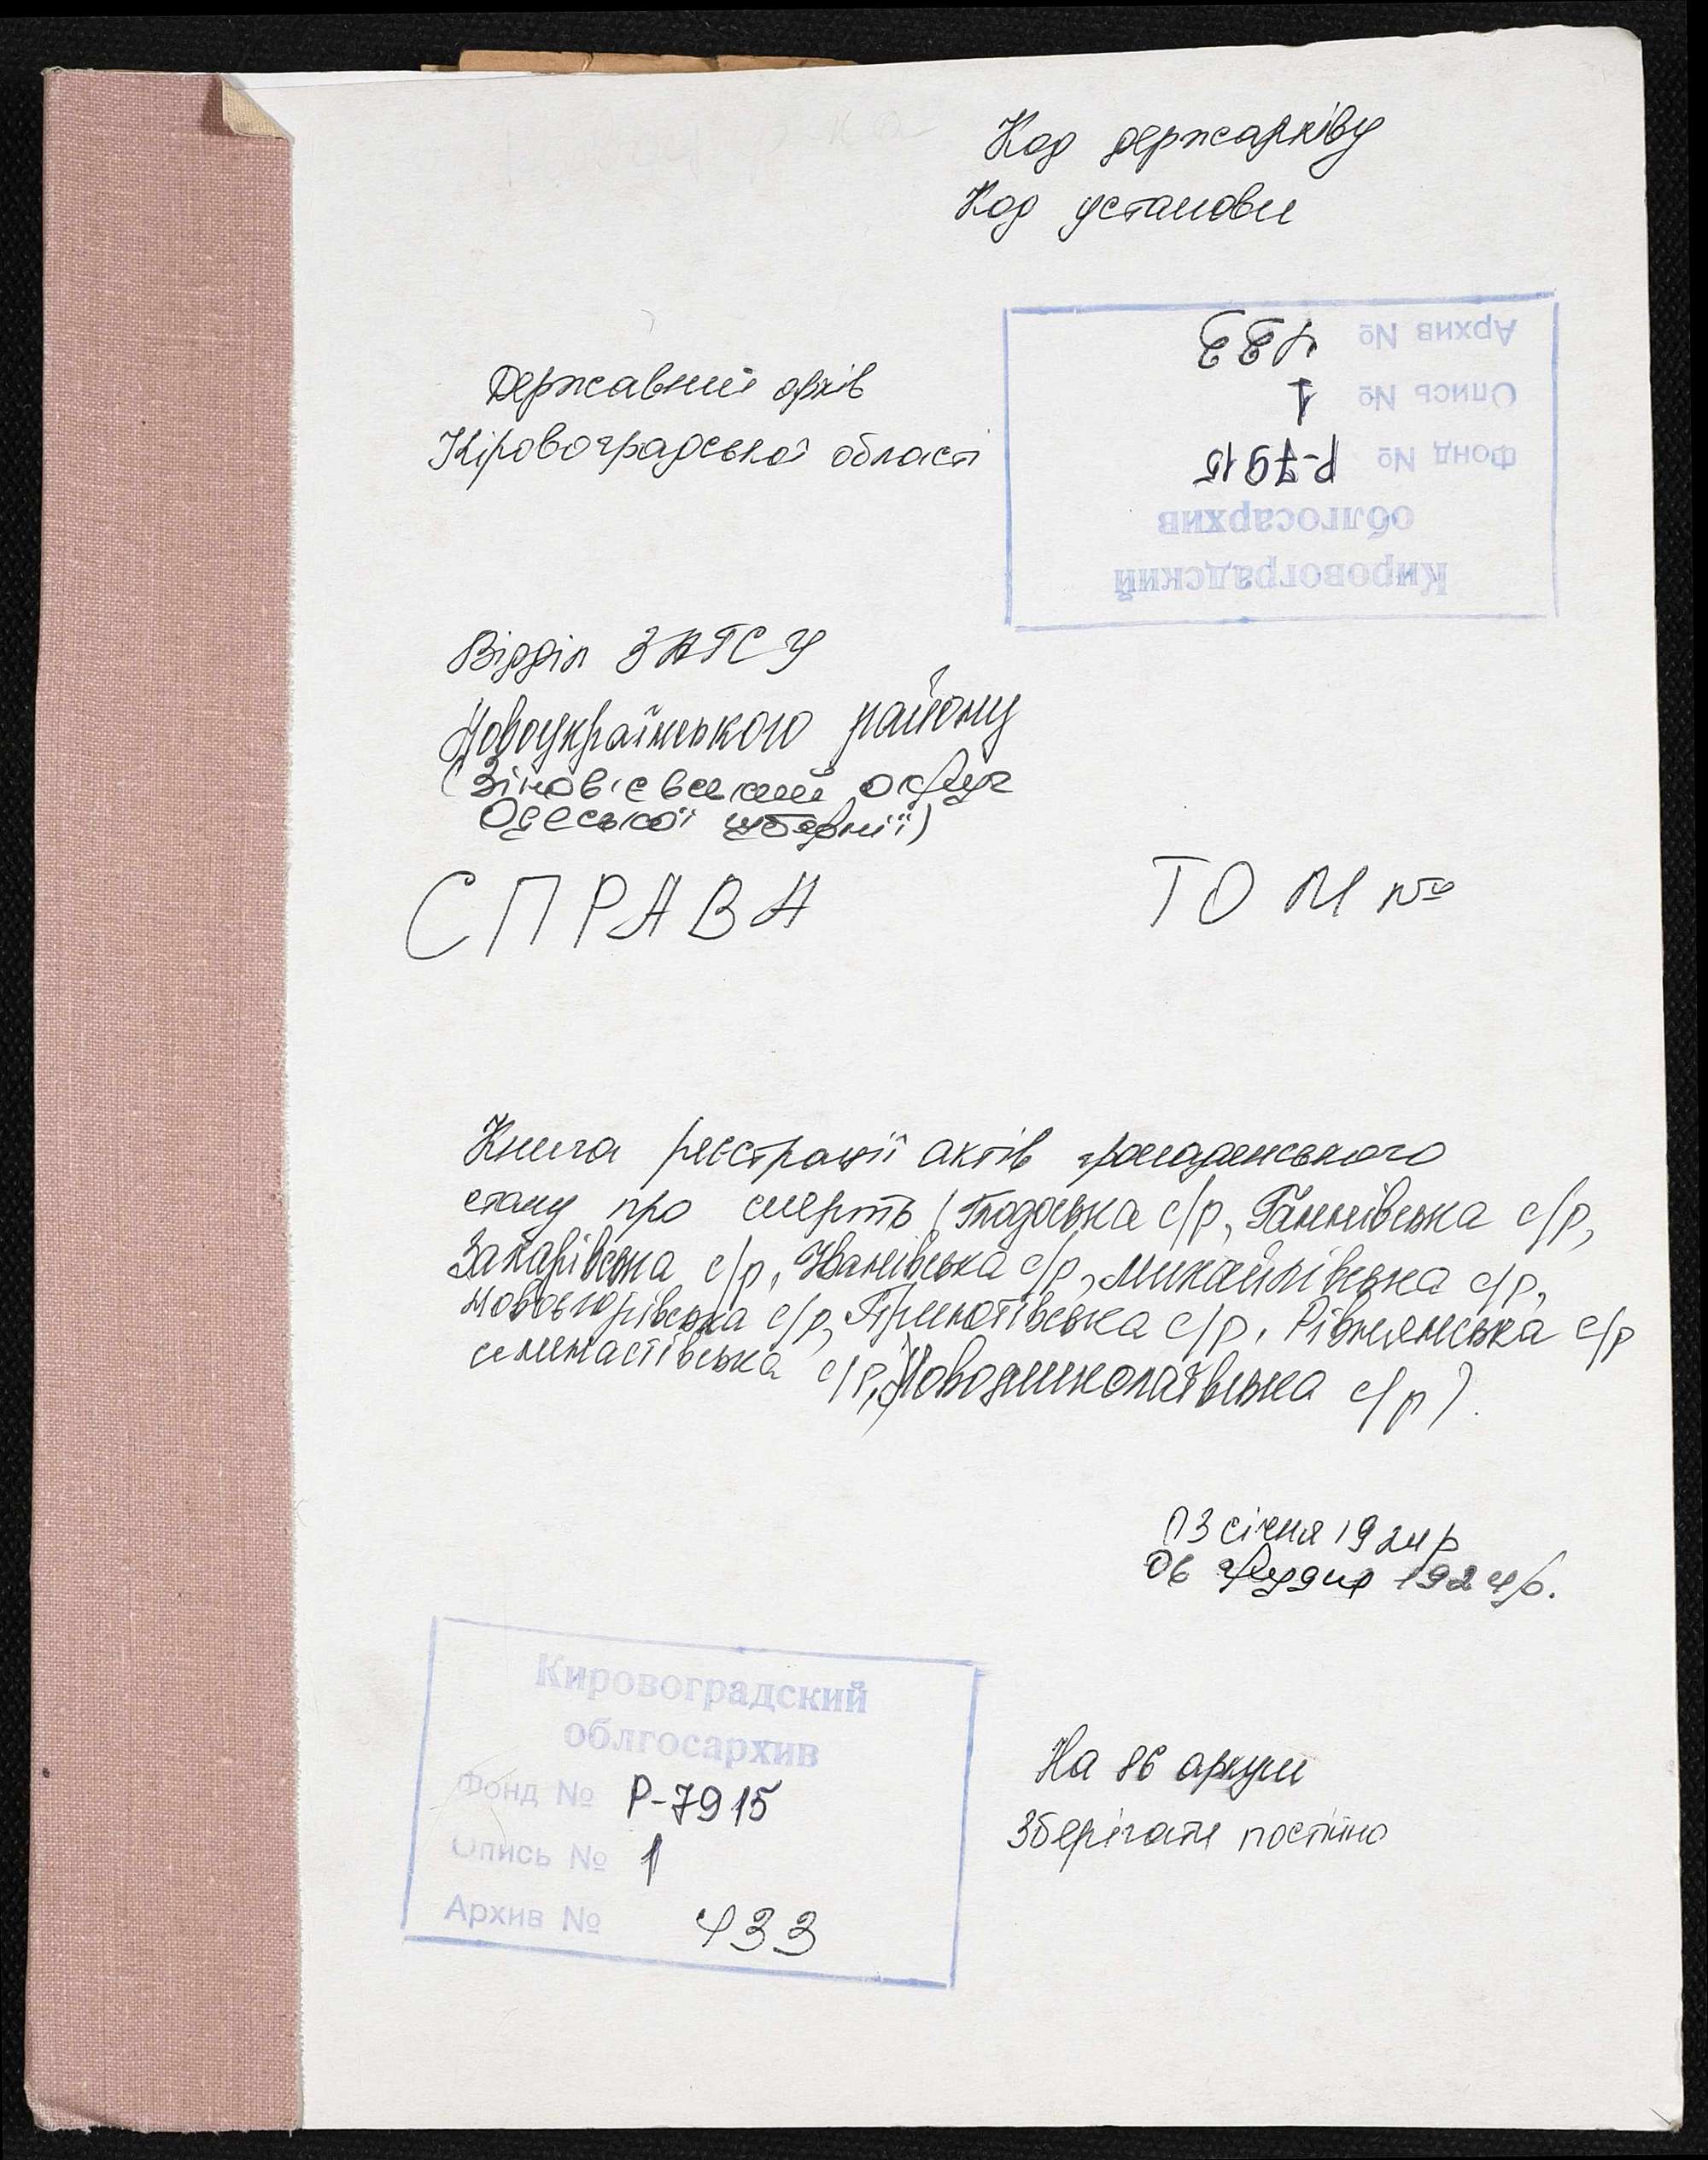 Код держархіву
Код установи
Архив № 433
Опись № 1
Фонд № Р-7915
облгосархив
Кировоградский
Державний архів
Кіровоградської області
Відділ ЗАГСУ
Новоукраїнського району
(Зінов'євський округ
Одеської губернії)
СПРАВА
ТОМ №
Книга реєстрації актів громадянського
стану про смерть (Глодоська с/р, Ганнівська с/р,
Захарівська с/р, Іванівська с/р, Михайлівська с/р,
Новоєгорівська с/р, с/р, Рівнянська с/р
с/р, Новомиколаївська с/р).
03 січня 1924р
06 грудня 1924р.
Кировоградский
облгосархив
Фонд № Р-7915
Опись № 1
Архив № 433
На 86 аркуш
Зберігати постійно